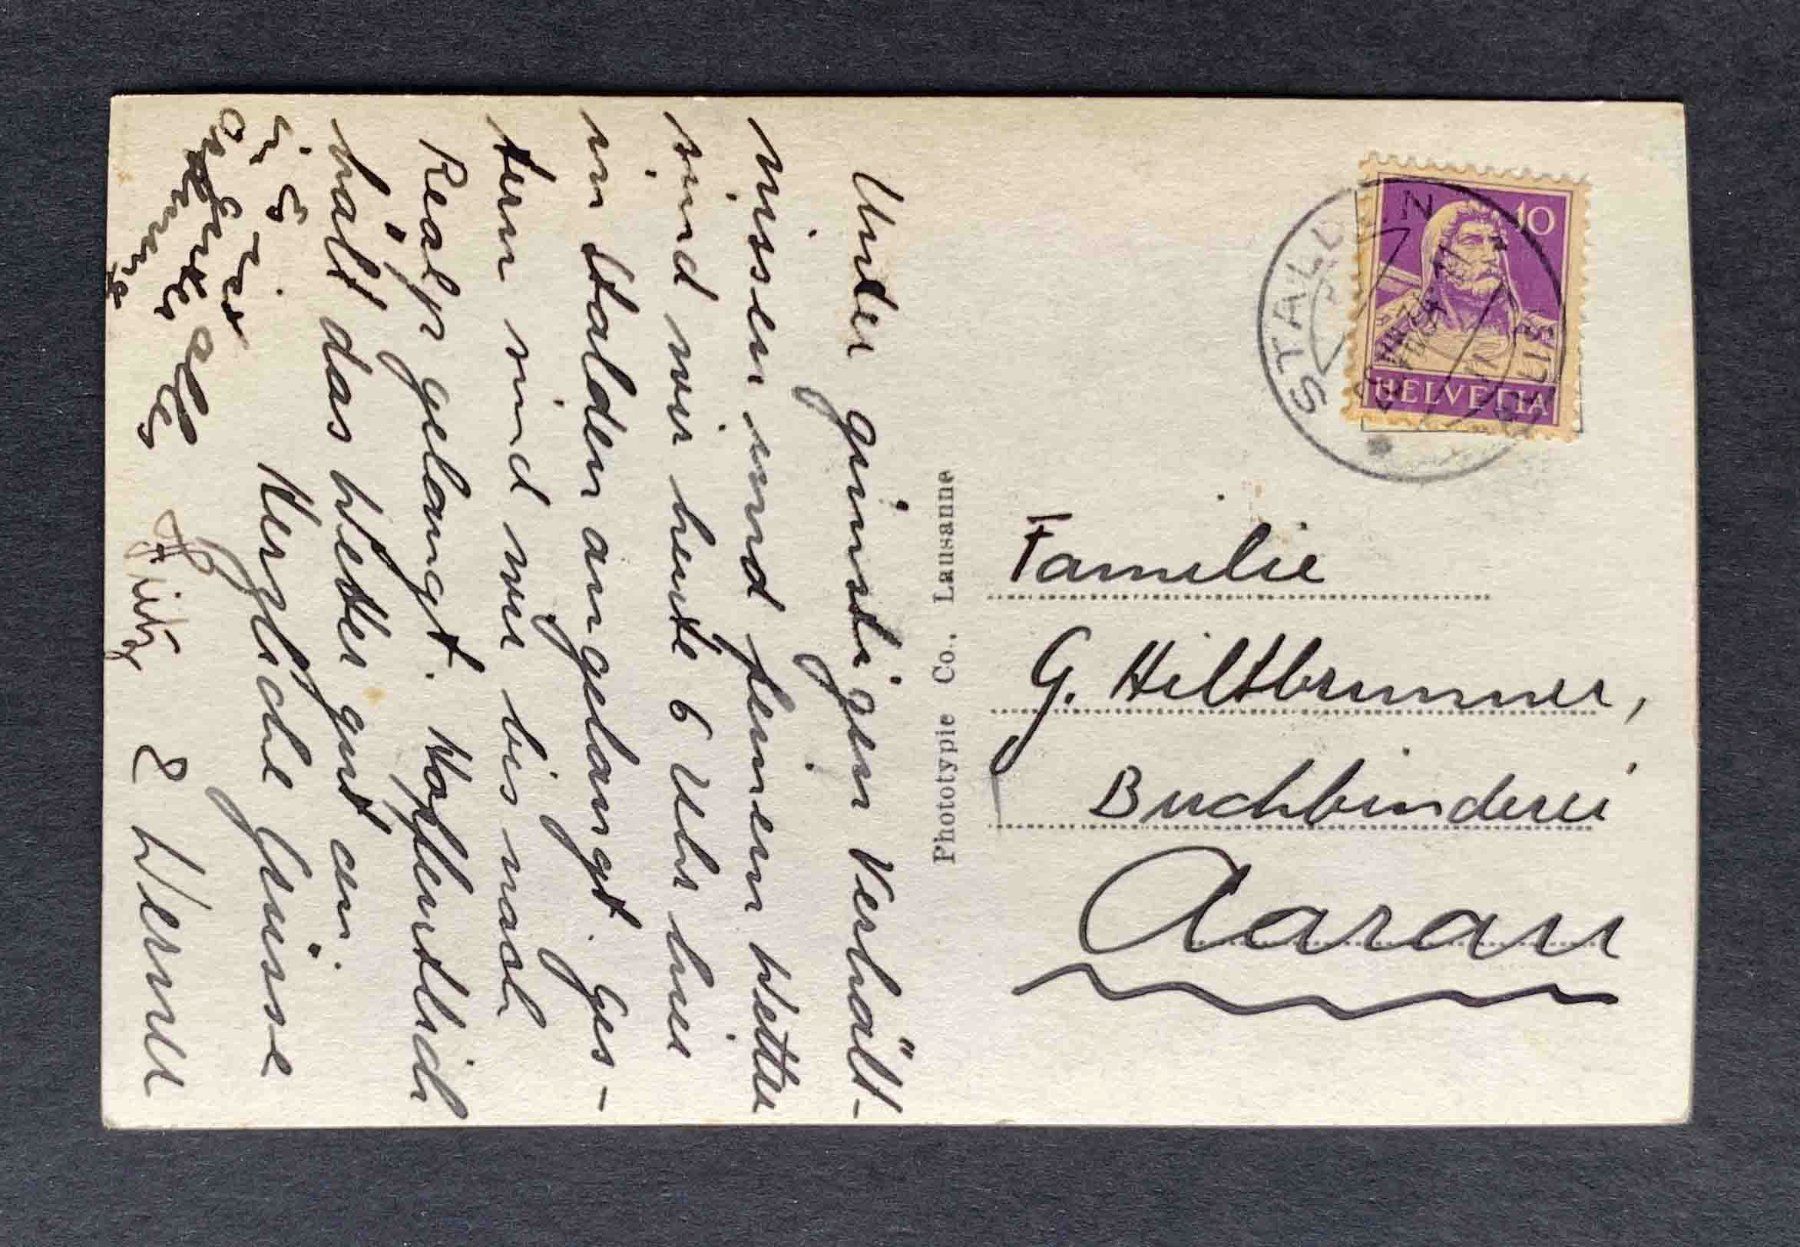 Unter günstigen Verhält-
nissen und feinem Wetter
sind wir heute 6 Uhr hier
in Stalden angelangt. Ges-
tern sind wir bis nach
Realp gelangt. Hoffentlich
hält das Wetter gut an.
Herzliche Grüsse
Fritz & Werner
es ist
alles
Phototypie Co., Lausanne
STALDEN
10
HELVETIA
Familie
G. Hiltbrunner,
Buchbinderei
Aarau